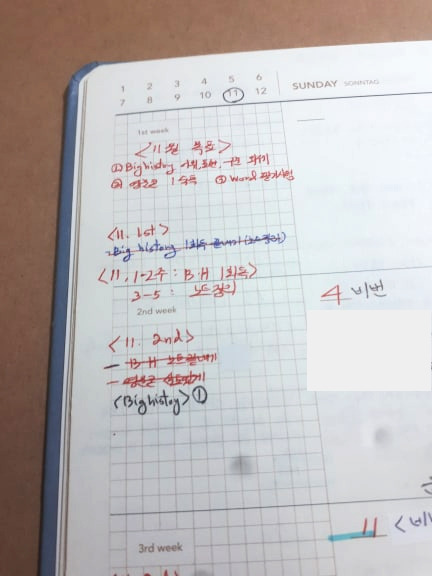 1 2 3 4 5 6
7 8 9 10 11 12
SUNDAY SONNTAG
1st week
<11월 목표>
① Big history
② 1회독 ③ Word 필기시험
<11. 1st>
- Big history 1회독 끝내기 (노트정리)
<11, 1-2주 : B.H 1회독>
3-5 : 노트정리
4 비번
2nd week
<11. 2nd>
- B.H 노트
<Big history> ①
11 <비
3rd week